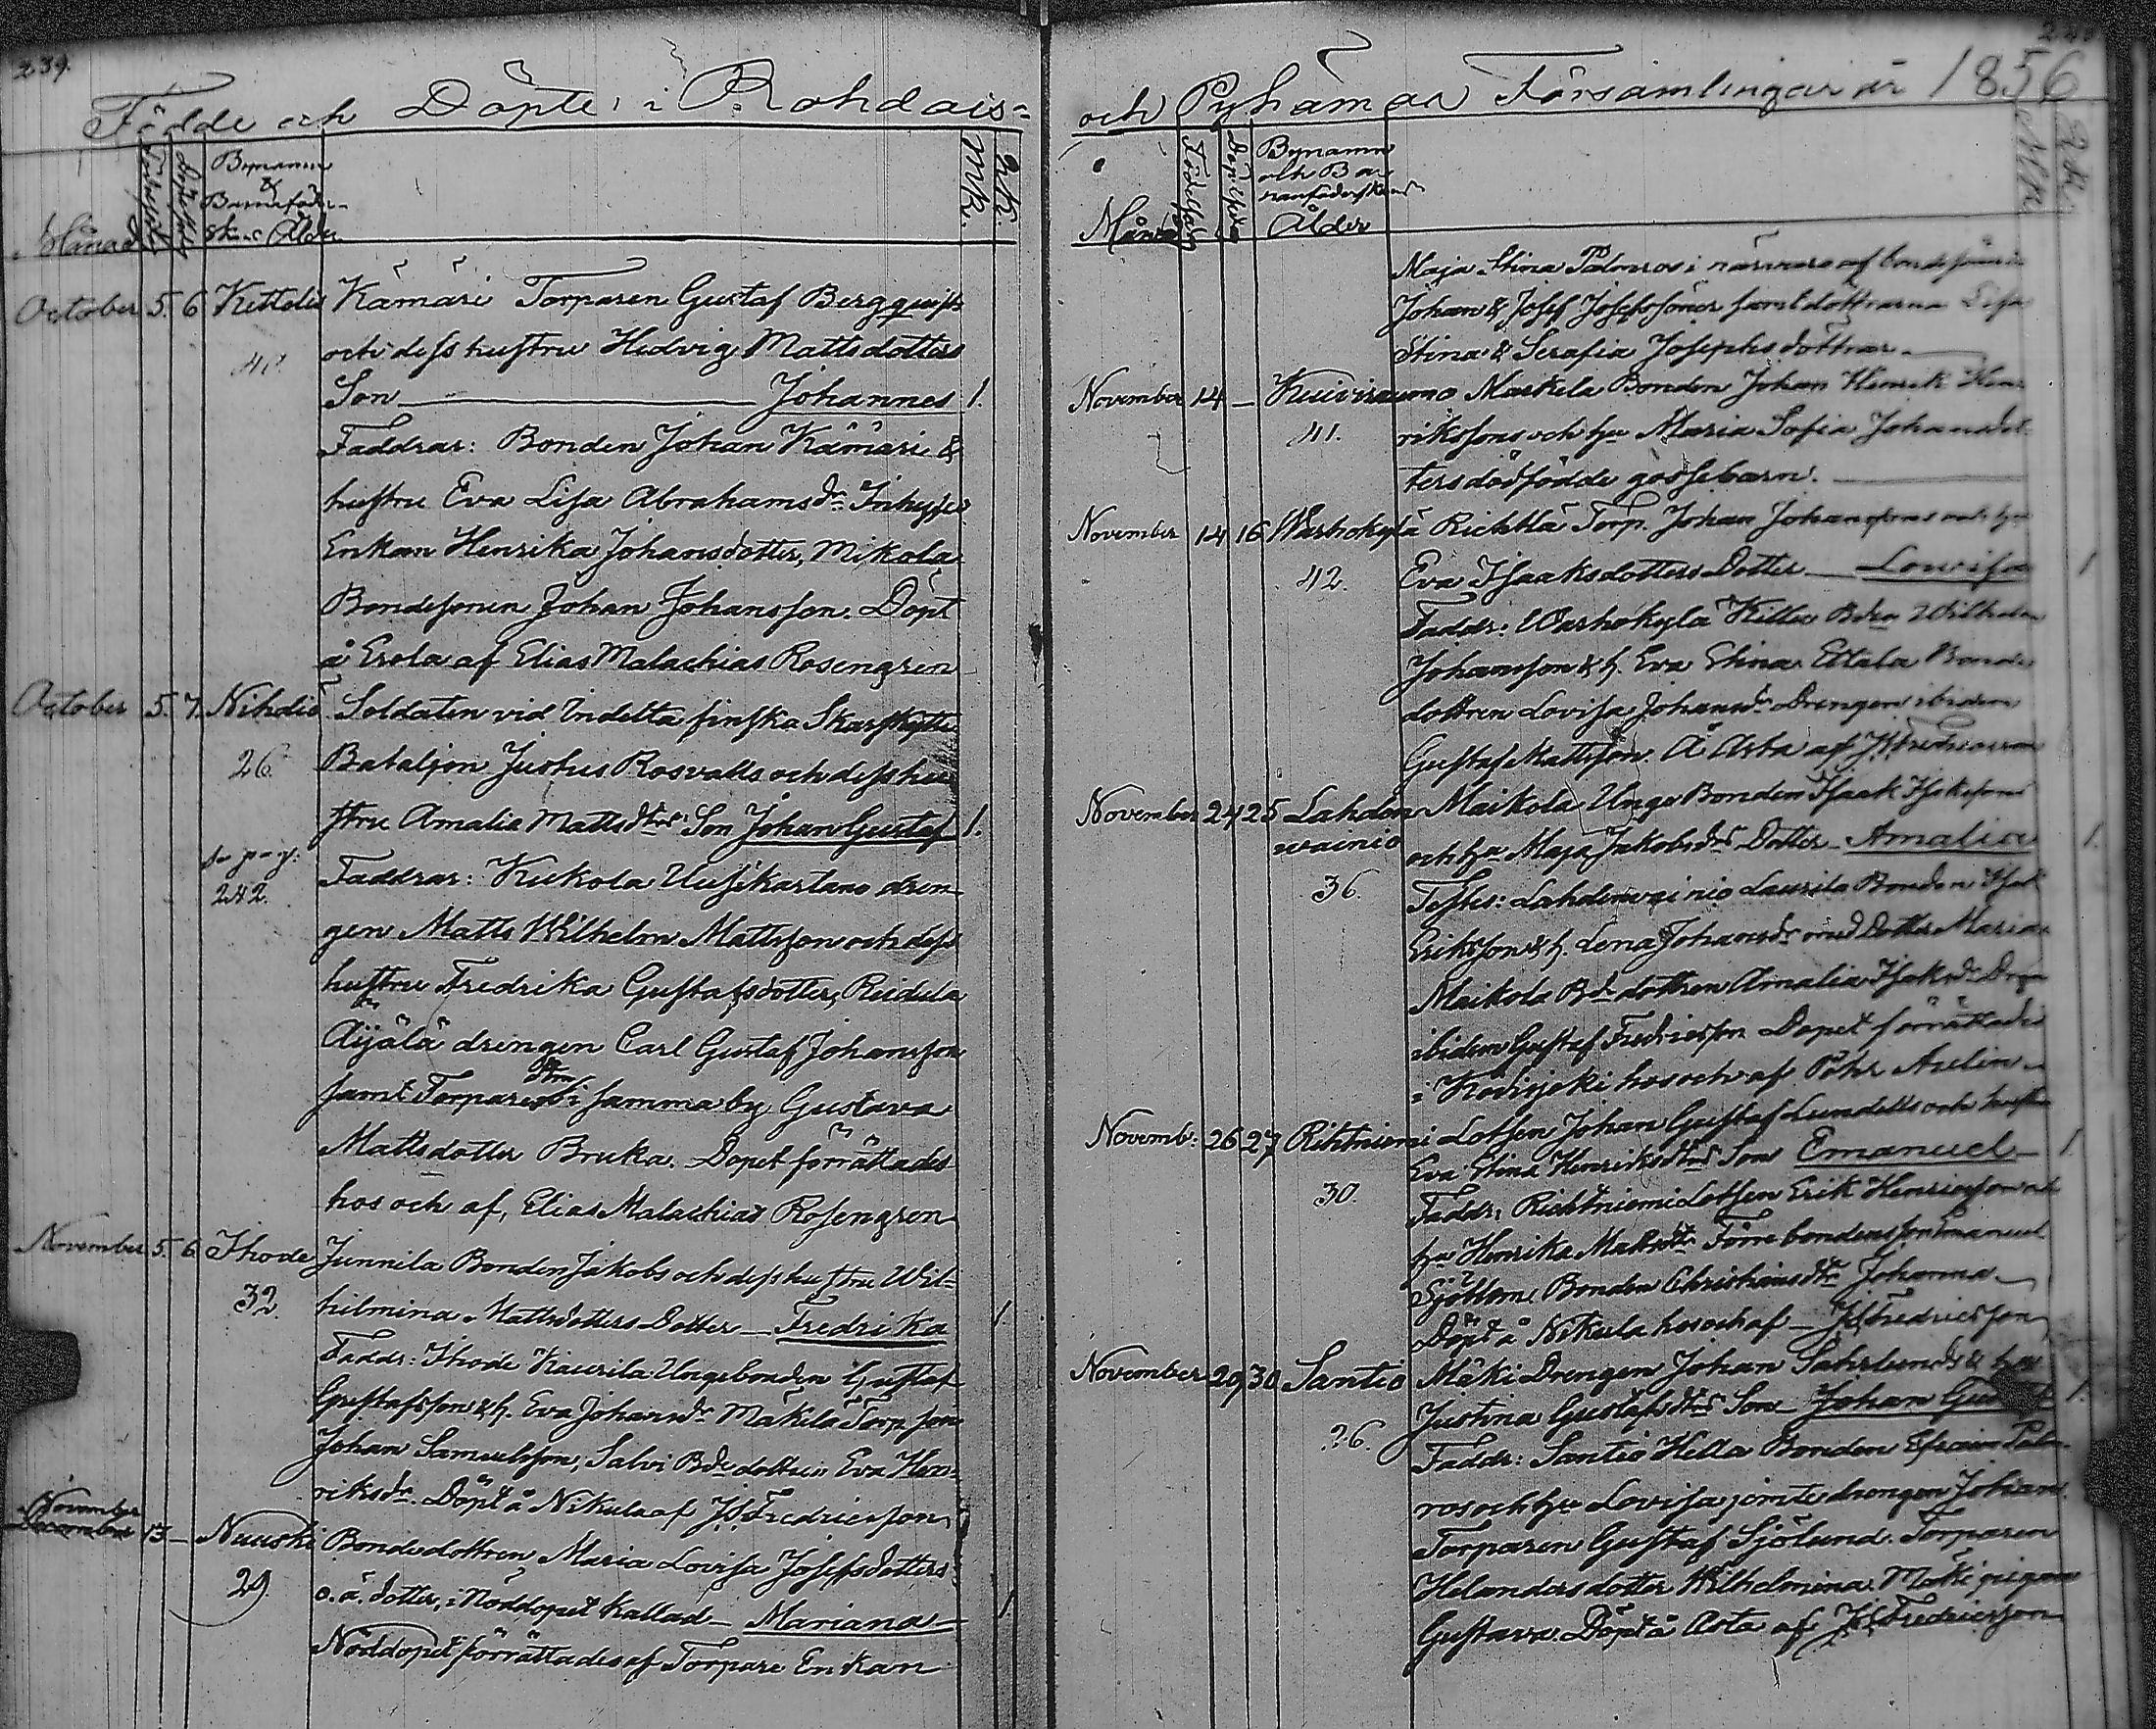 239.
Födde och Döpte i Rohdais=
Månad
Födelsedag
Döpelsedag
Bynamn
&
Barnaföder-
skans Ålder
Mk.
Qk.
October 5. 6 Kettelis Kämäri Torparen Gustaf Bergquists
och dess hustru Hedvig Mattsdotters
Son Johannes 1.
Faddrar: Bonden Johan Kämäri &
hustru Eva Lisa Abrahamsdr Inhyses
Enkan Henrika Johansdotter, Mikola
Bondesonen Johan Johansson. Döpt
å Erola af Elias Malachias Rosengren
October 5. 7. Nihdiö Soldaten vid Indelta finska Skarpskytte
26. Bataljon Justus Rosvalls och dess hu
stru Amalia Mattsdtrs Son Johan Gustaf 1.
se pag:
242. Faddrar: Kukola Uusikartano dren-
gen Matts Wilhelm Mattsson och dess
hustru Fredrika Gustafsdotter, Reidula
Äijälä drengen Carl Gustaf Johansson
samt Torpare dtrn i samma by Gustava
Mattsdotter Bruka. Dopet förrättades
hos och af, Elias Malachias Rosengren
November 5. 6 Ihode Junnila Bonden Jakobs och dess hustru Wil-
32. hilmina Mattsdotters Dotter Fredrika 1
Faddr: Ihode Kaurila Ungebonden Gustaf
Gustafsson & h. Eva Johansdr Mäkilä Torp. son
Johan Samuelsson, Salvi Bde dottren Eva Hen-
riksdr. Döpt å Nikula af J. Fredricsson
November
December 13 — Nuuski Bondedottren Maria Lovisa Josefsdotters
29. o. ä. dotter, i Nöddopet kallad Mariana 1.
Nöddopet förrättades af Torpare Enkan
och Pyhämaa Församlingar år 1856
Månad
Födelsedag
Döpelsedag
Bynamn
och Bar
nanföderskans
Ålder
Mk
Qk.
Maja Stina Palmros i närvaro af bondesöner
Johan & Josef Josefssöner samt döttrarna Lisa
Stina & Serafia Josephsdöttrar
November 14 — Kuivirauma Markela Bonden Johan Henrik Hen-
41. rikssons och hu Maria Sofia Johansdot
ters dödfödde gossebarn.
November 14 16 Warhokylä Richtlä Torp. Johan Johanssons och hu
42. Eva Isaaksdotters Dotter Lowisa 1
Faddr: Warhokylä Killa Bden Wilhelm
Johansson & h. Eva Stina Ettala Bonde
dottren Lovisa Johansdr Drengen ibidem
Gustaf Mattsson. Å Asta af J. Fredricsson
November 24 25 Lahden Maikola Unge Bonden Isaak Isakssons
wainio och hu Maja Jakobsdrs Dotter Amalia 1.
36. Testes: Lahdenwainio Laurila Bonden Isak
Eriksson & h. Lena Johansdr med Dotter Maria
Maikola Bde dottren Amalia Isaksdr Dren
ibidem Gustaf Fredricsson Dopet förrättades
i Kodisjoki hos och af Pehr Aulin
Novemb: 26 27 Rihtniemi Lotsen Johan Gustaf Lundells och hustru
30. Eva Stina Henriksdtrs Son Emanuel 1.
Faddr: Richtniemi Lotsen Erik Henricsson och
hu Henrika Mattsdtr Förre bondens son Emanuel
Sjöblom Bonden Christians dtr Johanna
Döpt å Nikula hos och af J. Fredricsson
November 29 30 Santio Mäki Drengen Johan Sahrlunds & hus
26. Justina Gustafsdtrs Son Johan Gustaf 1.
Faddr: Santio Hella Bonden Efraim Palm-
ros och hu Lovisa, jemte drengen Johan
Torparen Gustaf Sjölund. Torparen
Helanders dotter Wilhelmina. Mäki pigan
Gustava. Döpt å Asta af J. Fredricsson